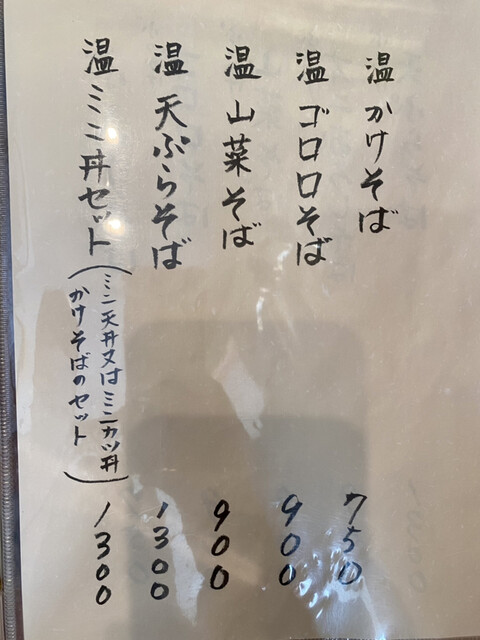 温 かけそば 750
温 ゴロロそば 900
温 山菜そば 900
温 天ぷらそば 1300
温 ミニ丼セット
(ミニ天丼又はミニカツ丼
かけそばのセット) 1300